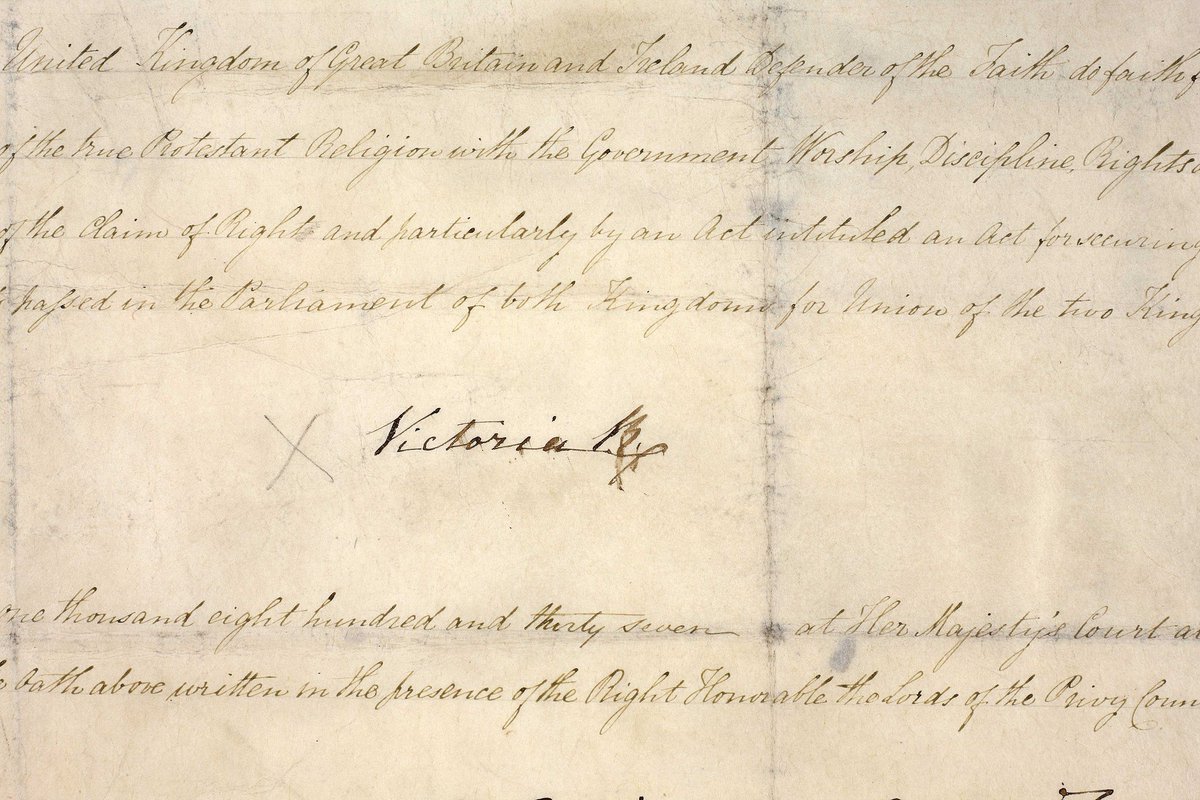 United Kingdom of Great Britain and Ireland Defender of the Faith do faith
of the true Protestant Religion with the Government Worship, Discipline, Rights
of the Claim of Right and particularly by an Act intituled an Act for securing
passed in the Parliament of both Kingdoms for Union of the two King
Victoria R
one thousand eight hundred and thirty seven at Her Majesty's Court at
Oath above written in the presence of the Right Honorable the Lords of the Privy Coun